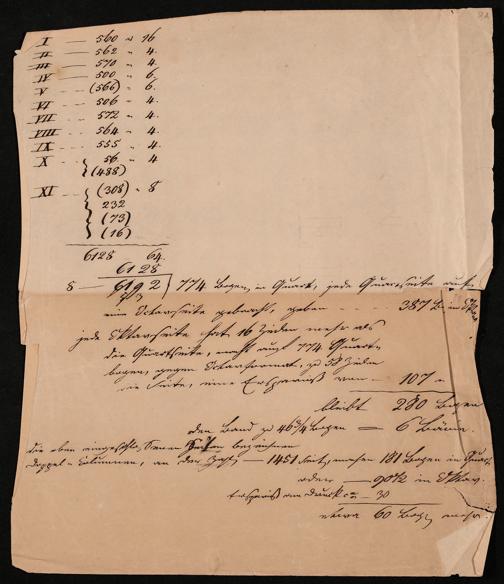 I — 560 " 16
II — 562 " 4.
III — 570 " 4.
IV — 500 " 6.
V — (566) " 6.
VI — 506 " 4.
VII — 572 " 4.
VIII — 564 " 4.
IX — 555 " 4.
X — 56 " 4
(488)
XI — (308) " 8
232
(73)
(16)
6128 64.
6128
8 — 6192 | 774 Bogen in Quart, jede Quartseite auf
eine Octavseite gebracht, geben - - - 387 B. in
jede Oktavseite hat 16 Zeilen mehr als
die Quartseite, macht auf 774 Quart-
bogen, gegen Octavformat, zu 38 Zeilen
die Seite, eine Ersparniß von — 107 "
bleibt 280 Bogen
den Band zu 46 3/4 Bogen = 6 Bände.
die oben eingeschlossenen bezeichnen
Doppel-Columnen, an der Zahl — 1451 Seit., machen 181 Bogen in Quart
oder — 90 1/2 in Oktav.
Ersparniß am Druck — 30
etwa 60 Bog. mehr.